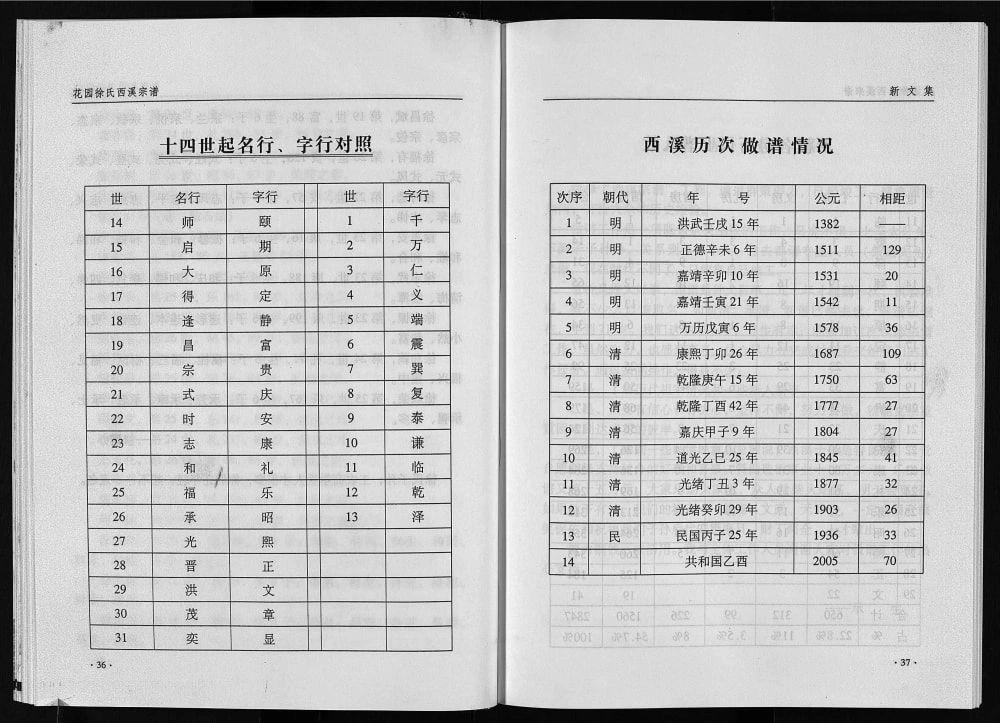 花园徐氏西溪宗谱
十四世起名行、字行对照
世 名行 字行 世 字行
14 师 颐 1 千
15 启 期 2 万
16 大 原 3 仁
17 得 定 4 义
18 逢 静 5 端
19 昌 富 6 震
20 宗 贵 7 巽
21 式 庆 8 复
22 时 安 9 泰
23 志 康 10 谦
24 和 礼 11 临
25 福 乐 12 乾
26 承 昭 13 泽
27 光 熙
28 晋 正
29 洪 文
30 茂 章
31 奕 显
·36·
新文集
西溪历次做谱情况
次序 朝代 年号 公元 相距
1 明 洪武壬戌15年 1382 ——
2 明 正德辛未6年 1511 129
3 明 嘉靖辛卯10年 1531 20
4 明 嘉靖壬寅21年 1542 11
5 明 万历戊寅6年 1578 36
6 清 康熙丁卯26年 1687 109
7 清 乾隆庚午15年 1750 63
8 清 乾隆丁酉42年 1777 27
9 清 嘉庆甲子9年 1804 27
10 清 道光乙巳25年 1845 41
11 清 光绪丁丑3年 1877 32
12 清 光绪癸卯29年 1903 26
13 民 民国丙子25年 1936 33
14 共和国乙酉 2005 70
·37·